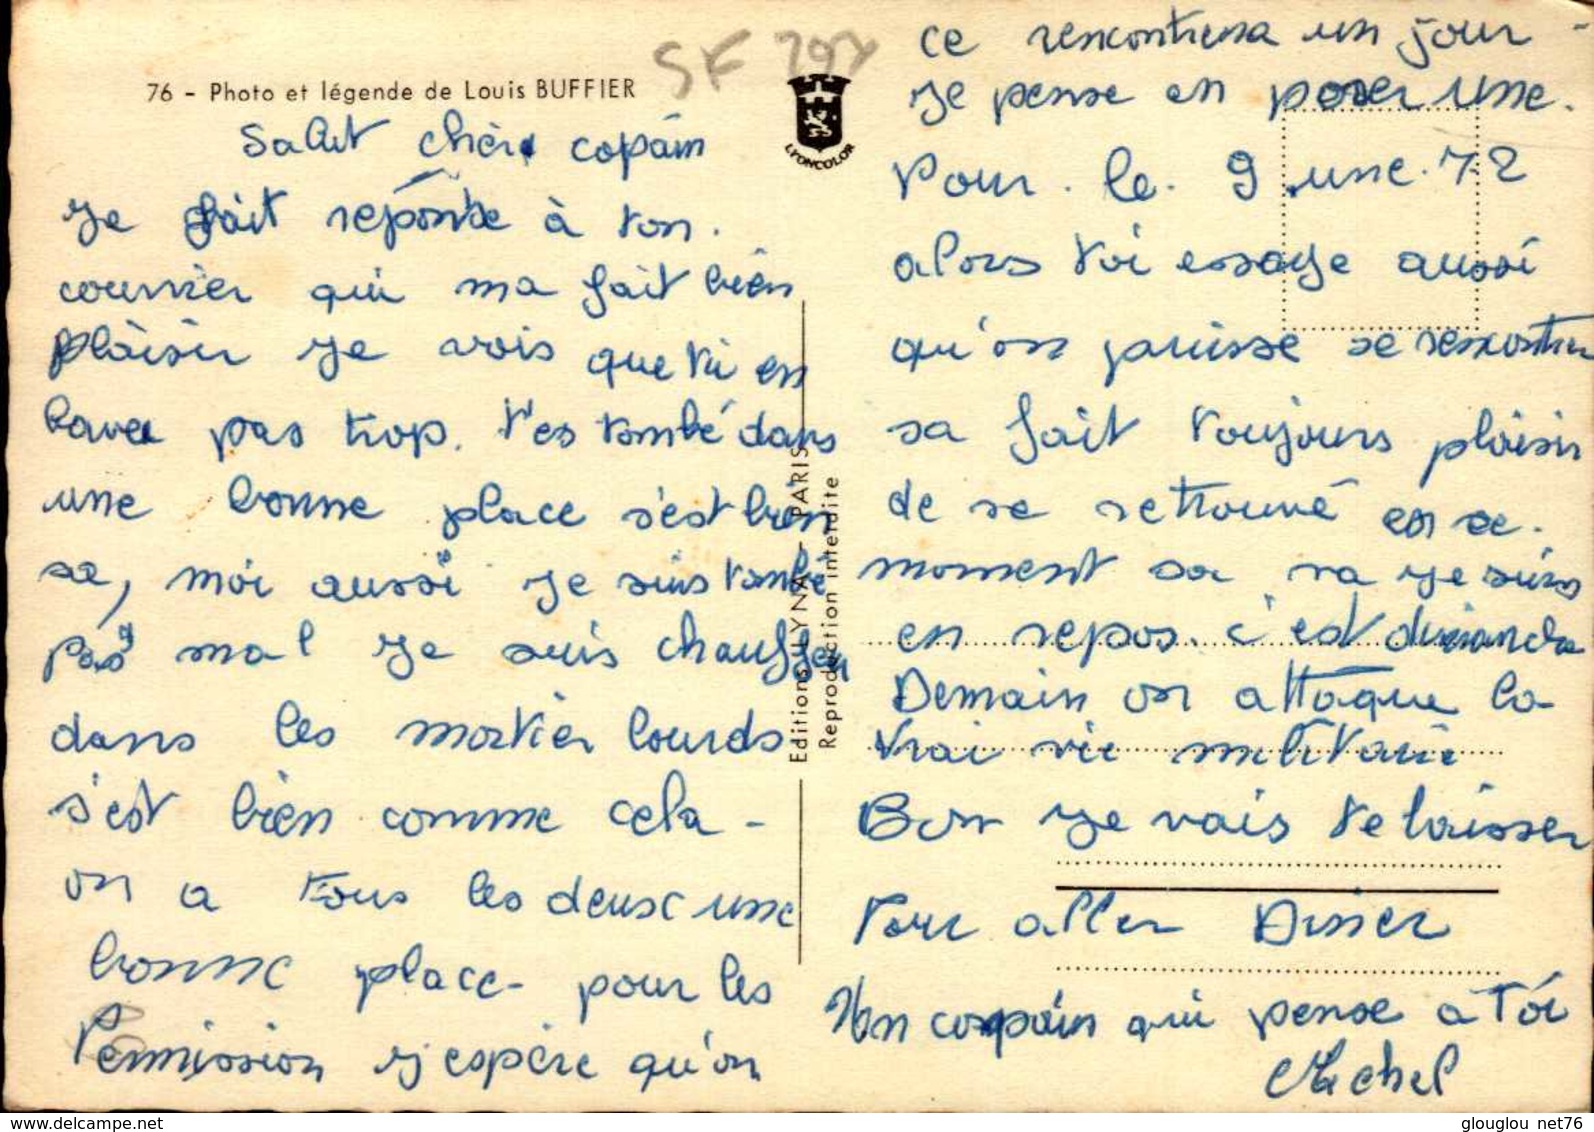 76 - Photo et légende de Louis BUFFIER
SF
LYONCOLOR
Salut chèr copain
Je fait réponse à ton.
courrier qui ma fait bièn
plàisir Je vois que tu en
bave pas trop. t'es tombé dans
une bonne place s'est bien
sa, moi aussi Je suis tombé
pas mal Je suis chauffeur
dans les mortier lourds
s'est bien comme cela -
on a tous les deux une
bonne place - pour les
Permission J'espère qu'on
Editions LYNA - PARIS
Reproduction interdite
ce rencontrera un jour -
Je pense en poser une.
Pour . le . 9 une. 72
alors toi essaye aussi
qu'on puisse se rencontrer
sa fait toujours plaisir
de se retrouvé en se.
moment sa va Je suis
en repos. c'est dimanche
Demain on attaque la
vrai vie militaire
Bon Je vais te laisser
Pour aller Diner
Un copain qui pense a Toi
Michel
glouglou net76